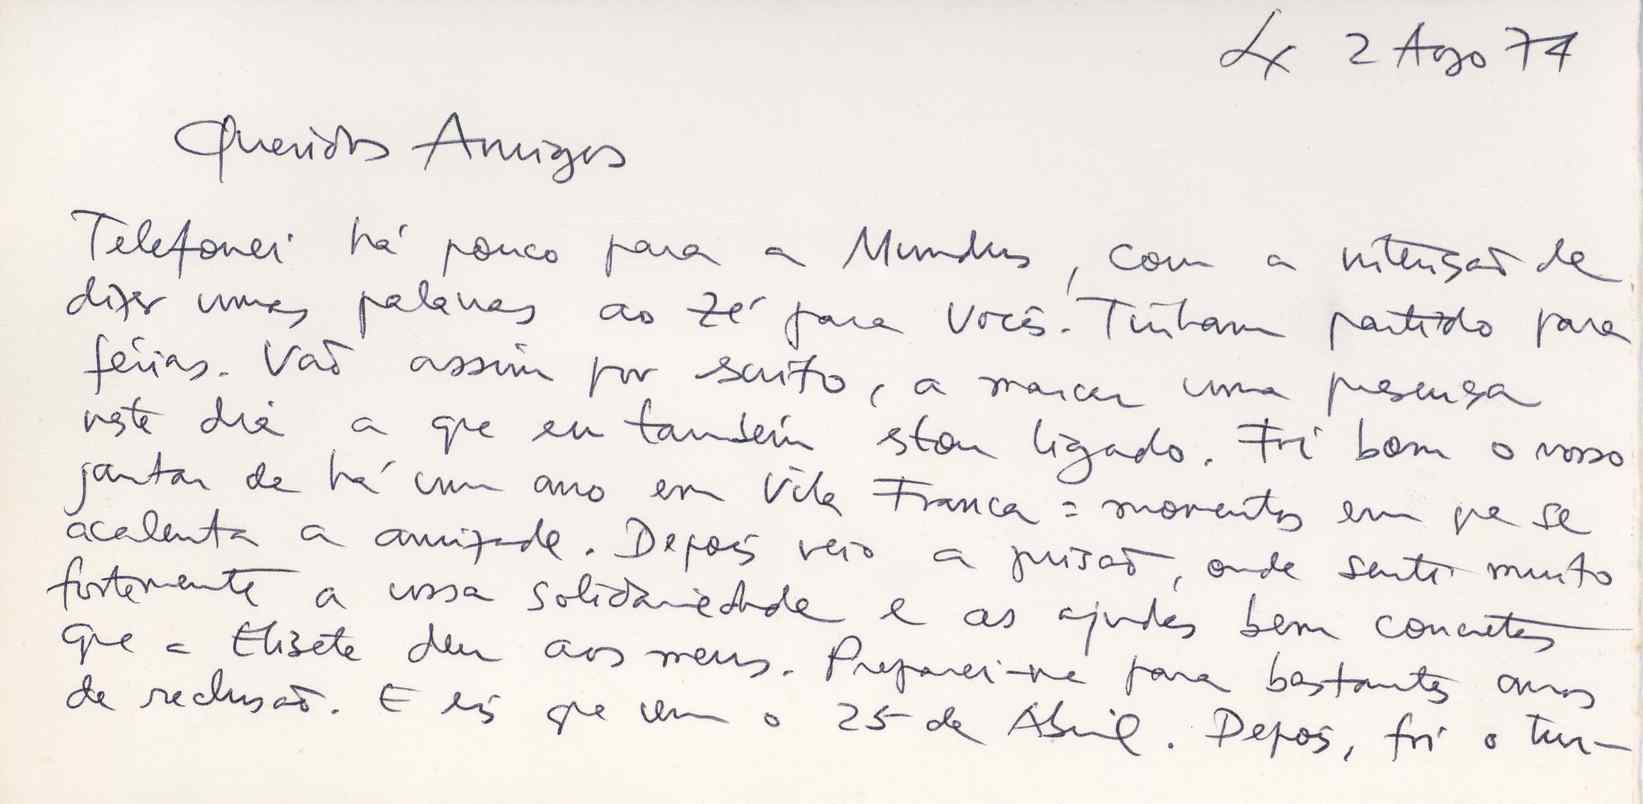 Lx 2 Ago 74
Queridos Amigos
Telefonei há pouco para a Mundus, com a intenção de
dizer umas palavras ao Zé para vocês. Tinham partido para
férias. Vão assim por escrito, a marcar uma presença
neste dia a que eu também estou ligado. Foi bom o vosso
jantar de há um ano em Vila Franca = momentos em que se
acalenta a amizade. Depois veio a prisão, onde senti muito
fortemente a vossa solidariedade e as ajudas bem concretas
que a Elisete deu aos meus. Preparei-me para bastantes anos
de reclusão. E eis que vem o 25 de Abril. Depois, foi o tur-